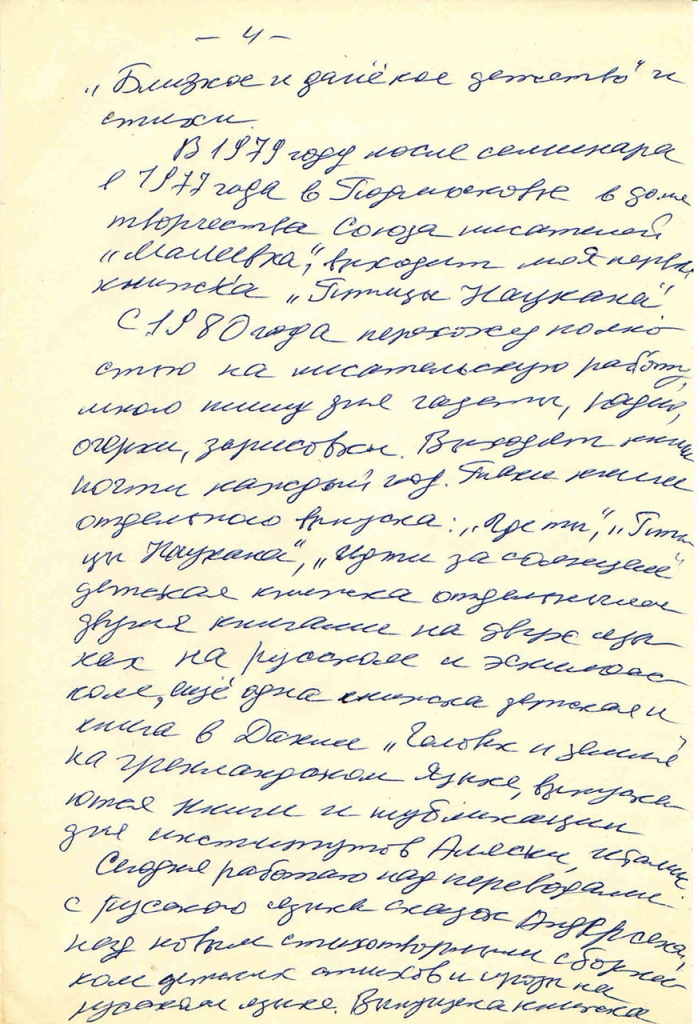 — 4 —
„Близкое и далёкое детство" и
стихи.
В 1979 году после семинара
в 1977 года в Подмосковье в доме
творчества Союза писателей
„Малеевка", выходит моя первая
книжка „Птицы Наукана"
С 1980 года перехожу полно-
стью на писательскую работу,
много пишу для газеты, радио,
очерки, зарисовки. Выходят книги
почти каждый год. Такие книги
отдельного выпуска: „Где ты", „Пти-
цы Наукана", „Идти за солнцем"
детская книжка отдельными
двумя книгами на двух язы-
ках на русском и эскимос-
ком, ещё одна книжка детская и
книга в Дании „Человек и земля"
на гренландском языке, выпуска-
ются книги и публикации
для институтов Аляски, Италии.
Сегодня работаю над переводами
с русского языка сказок Андерсена,
над новым стихотворным сборни-
ком детских стихов и прозы на
русском языке. Выпущена книжка